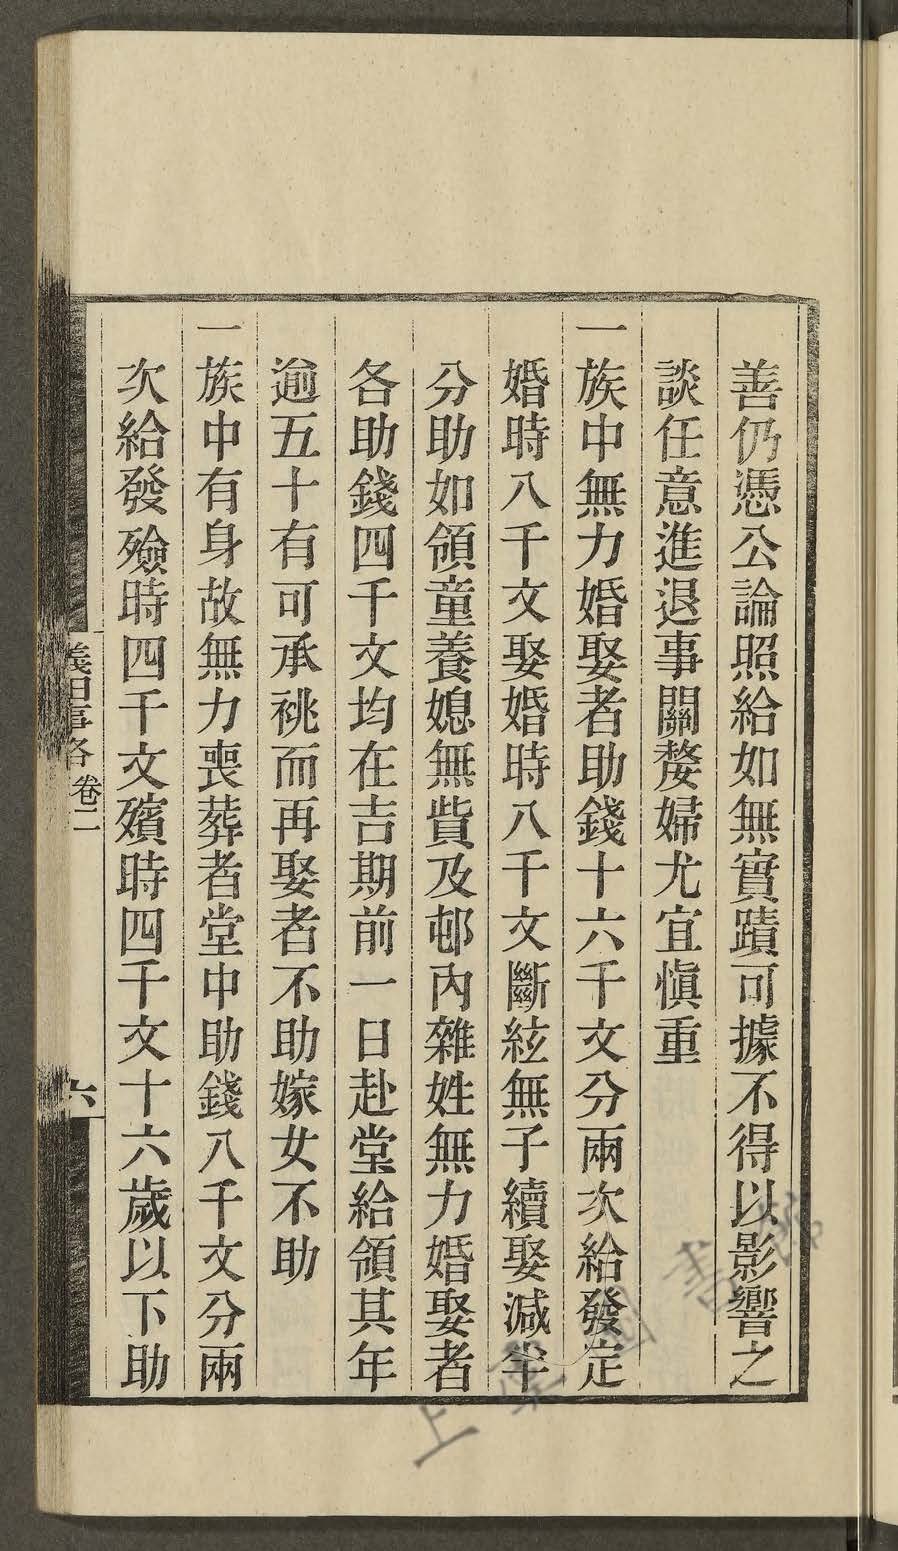 善仍憑公論照給如無實蹟可據不得以影響之
談任意進退事關嫠婦尤宜慎重
一族中無力婚娶者助錢十六千文分兩次給發定
婚時八千文娶婚時八千文斷絃無子續娶減半
分助如領童養媳無貲及邨內雜姓無力婚娶者
各助錢四千文均在吉期前一日赴堂給領其年
逾五十有可承祧而再娶者不助嫁女不助
一族中有身故無力喪葬者堂中助錢八千文分兩
次給發殮時四千文殯時四千文十六歲以下助
義田事略 卷二
六
上 圖書館